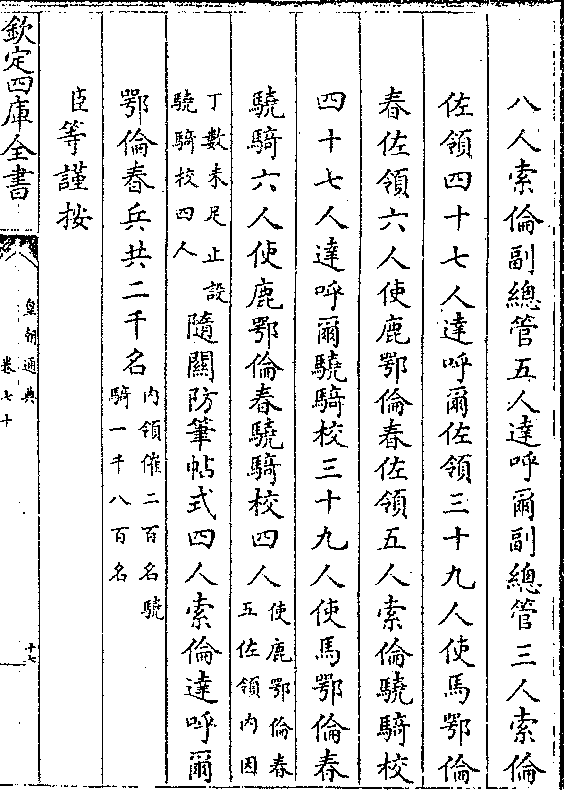 八人索倫副總管五人達呼爾副總管三人索倫
佐領四十七人達呼爾佐領三十九人使馬鄂倫
春佐領六人使鹿鄂倫春佐領五人索倫驍騎校
四十七人達呼爾驍騎校三十九人使馬鄂倫春
驍騎六人使鹿鄂倫春驍騎校四人使鹿鄂倫春
五佐領内因
丁數未足止設
驍騎校四人
隨關防筆帖式四人索倫達呼爾
鄂倫春兵共二千名内領催二百名驍
騎一千八百名
臣等謹按
欽定四庫全書
皇朝通典
卷七十
十七